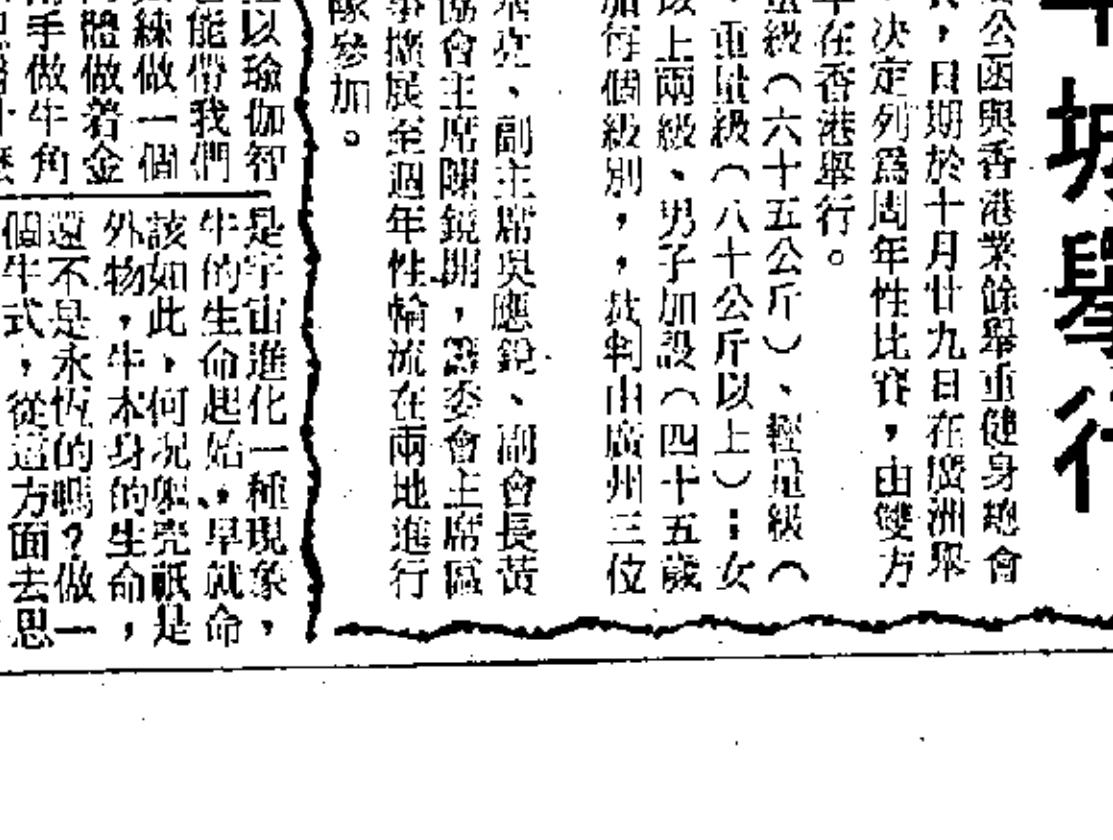 羊城舉行
公函與香港業餘舉重健身總會
，日期於十月廿九日在廣洲舉
決定列爲周年性比賽，由雙方
在香港舉行。
級（六十五公斤）、輕量級（
重量級（八十公斤以上）；女
以上兩級、男子加設（四十五歲
加每個級別，，裁判由廣州三位
、副主席吳應銳、副會長黃
協會主席陳鏡開，議委會主席區
擴展至週年性輪流在兩地進行
隊參加。
以瑜伽智
能帶我們
練做一個
體做着金
手做牛角
是宇宙進化一種現象，
牛的生命起始，早就命
該如此，何况軀壳祇是
外物，牛本身的生命，
還不是永恆的嗎？做一
個牛式，從這方面去思